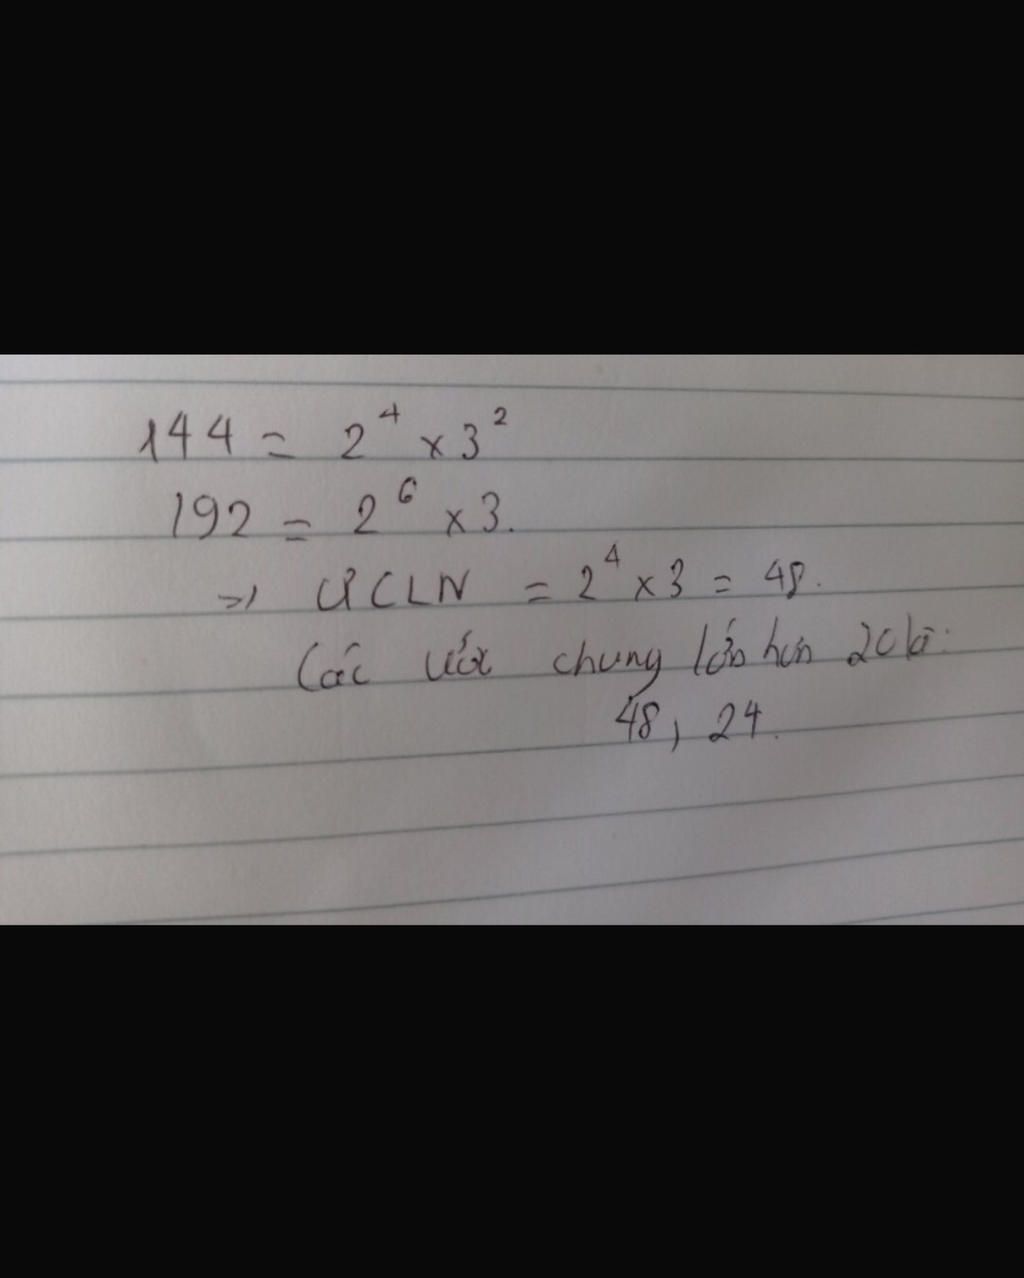 144 = 2⁴ x 3²
192 = 2⁶ x 3.
=> ƯCLN = 2⁴ x 3 = 48.
Các ước chung lớn hơn 20 là:
48, 24.